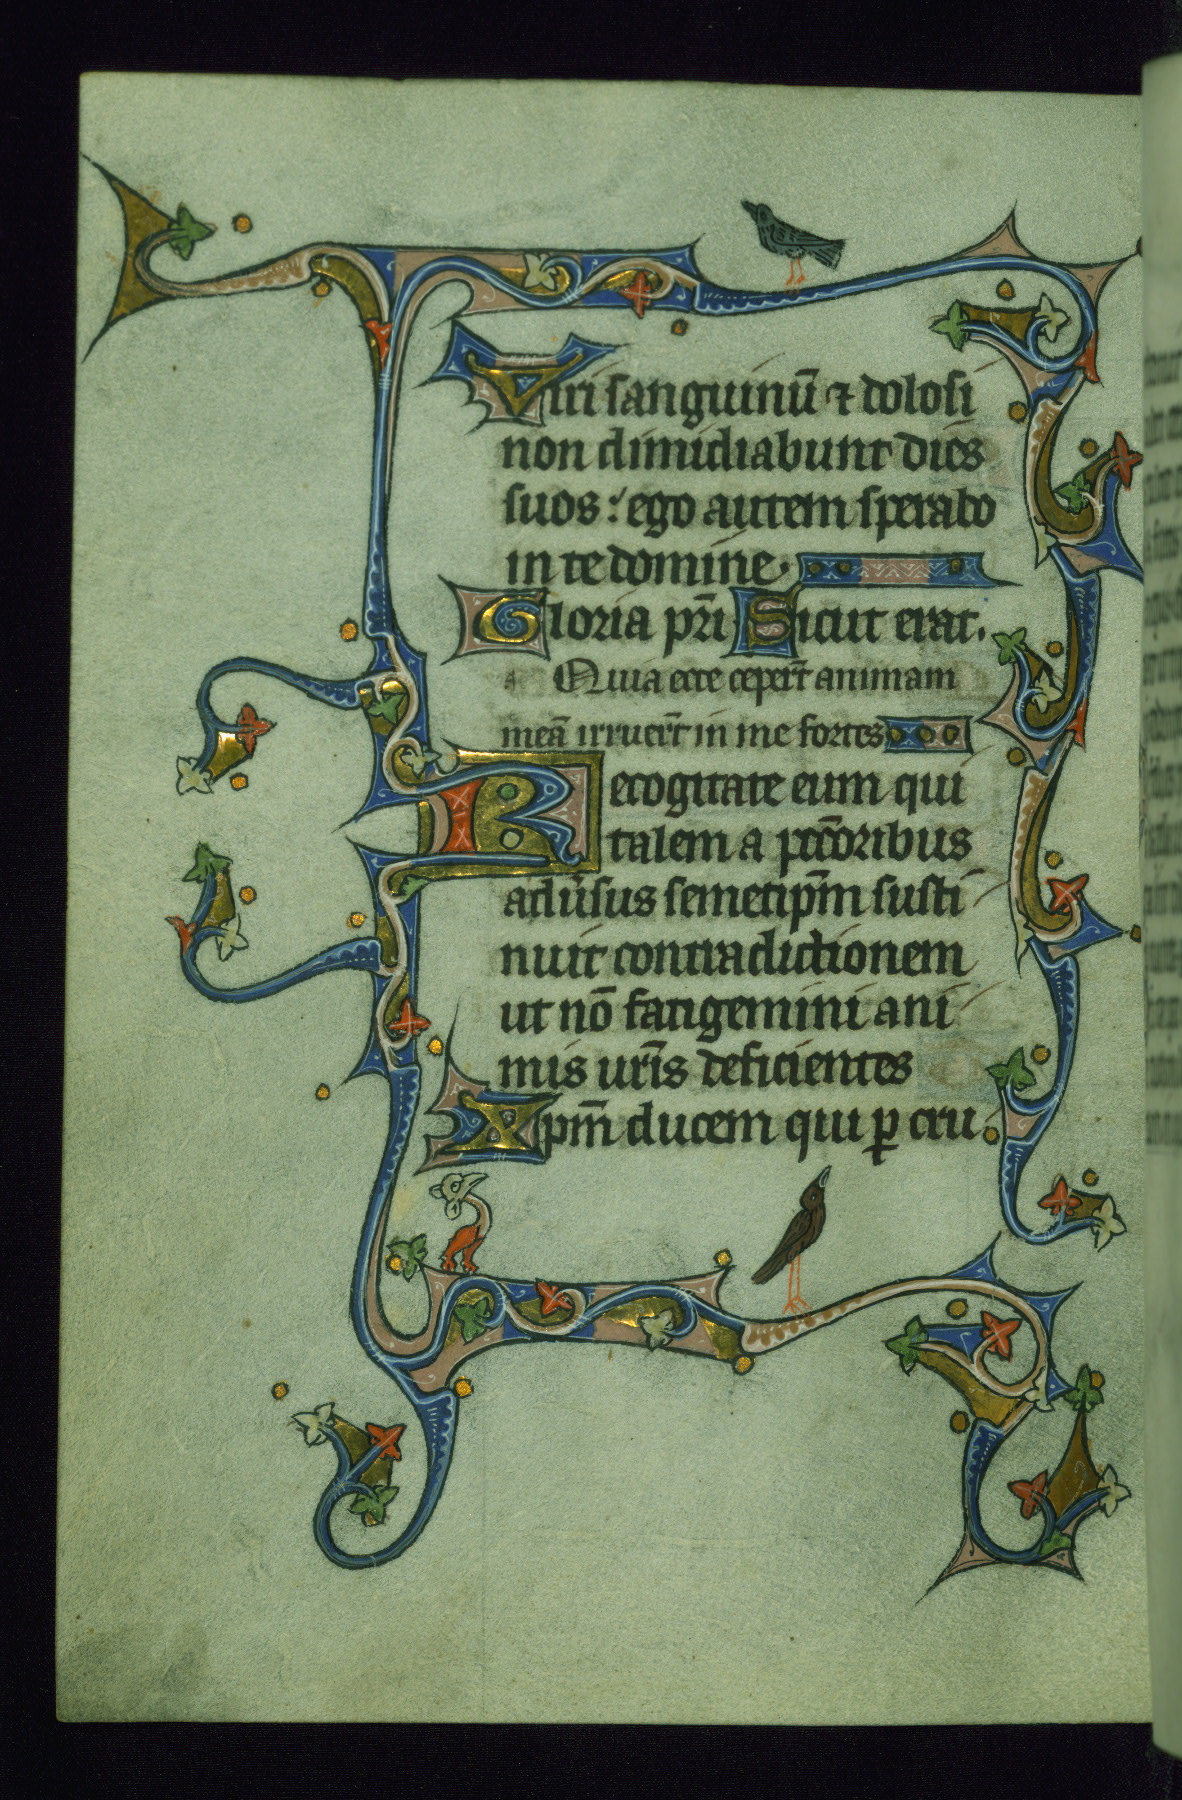 Viri sanguinū ⁊ dolosi
non dimidiabunt dies
suos : ego autem sperabo
in te domine.
Gloria pr̄i Sicut erat.
a Quia ecce ceper̄t animam
meā irruer̄t in me fortes
Recogitate eum qui
talem a pcc̄oribus
adũsus semetip̄m susti
nuit contradictionem
ut nō fatigemini ani
mis ur̄is deficientes
Xp̄m ducem qui ꝑ cru